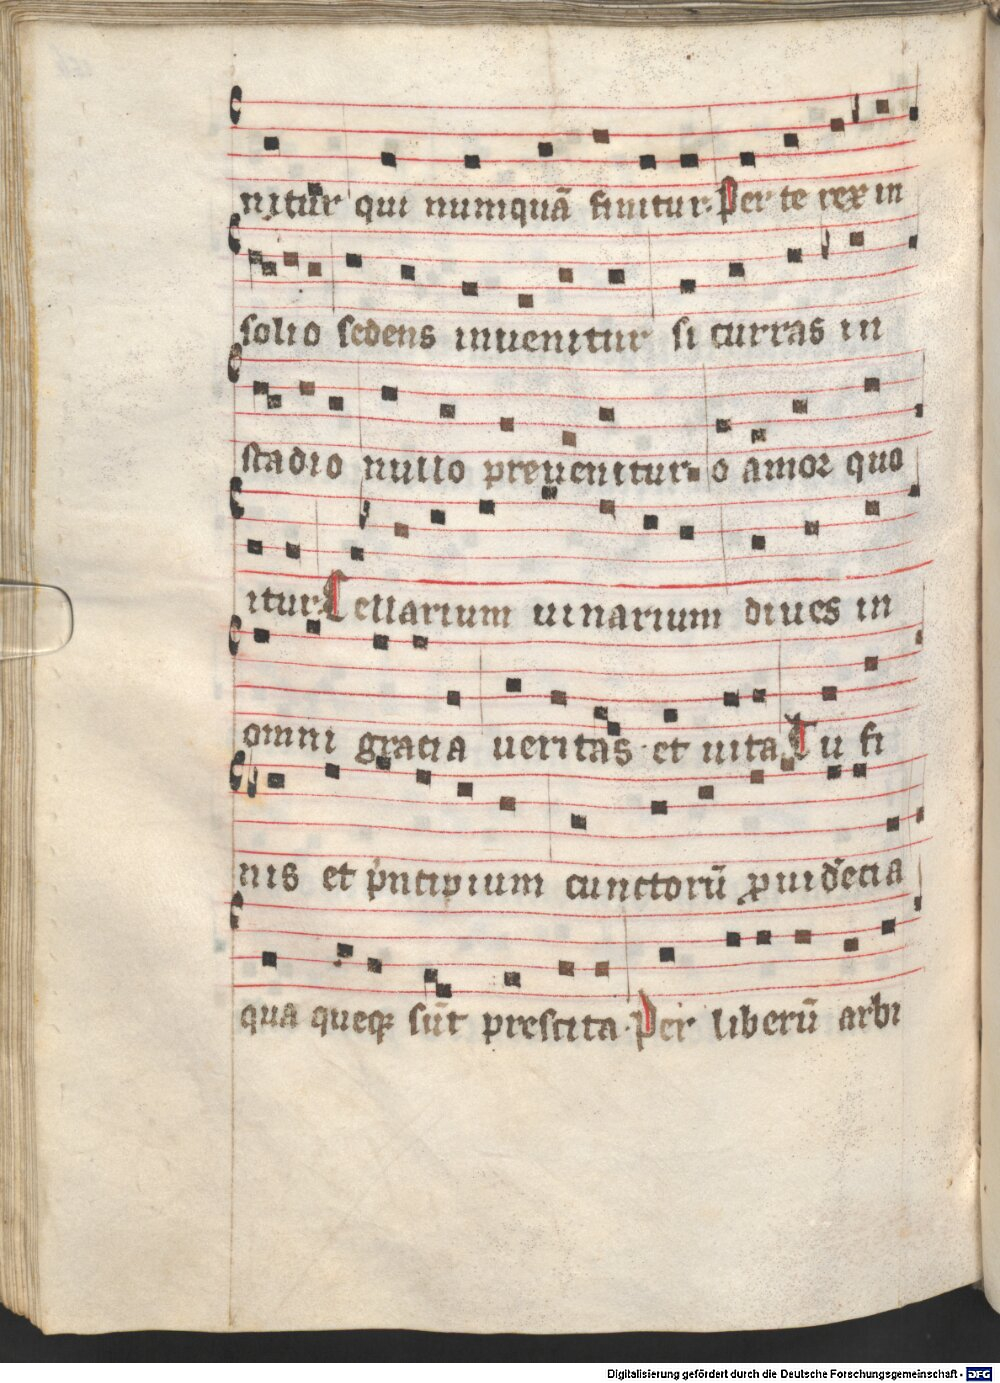 nitur qui numquā finitur. Per te rex in
solio sedens inuenitur si curras in
stadio nullo preuenitur. o amor quo
itur. Cellarium uinarium diues in
omni gracia ueritas. et uita. Tu fi
nis et p̍ncipium cunctorū ꝓuidēcia
qua queqꝫ sūt prescita. Per liberū arbi
Digitalisierung gefördert durch die Deutsche Forschungsgemeinschaft - DFG